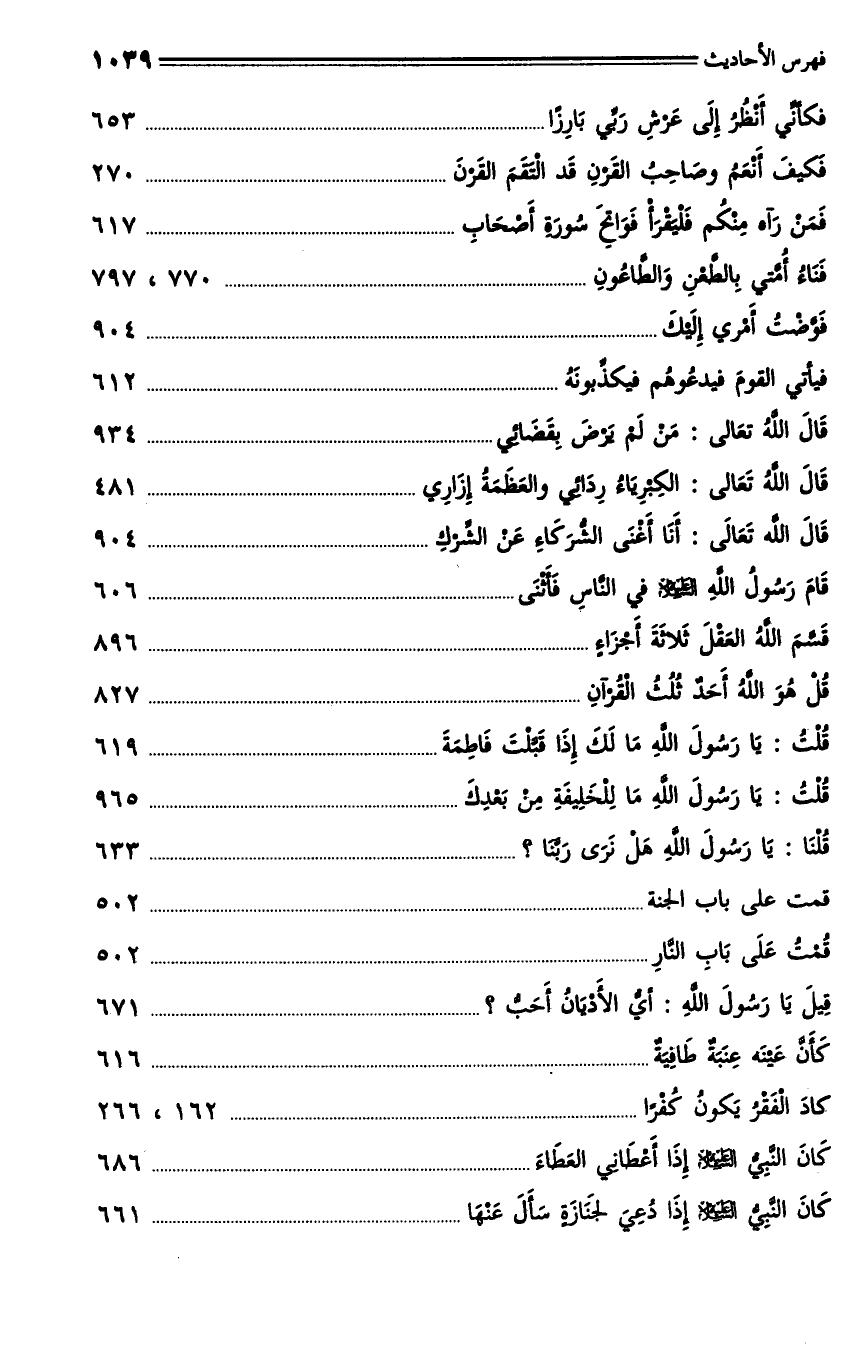 فهرس الأحاديث ١٠٣٩
فكأنِّي أَنْظُرُ إِلَى عَرْشِ رَبِّي بَارِزًا ٦٥٣
فَكيفَ أَنْعَمُ وصَاحِبُ القَرْنِ قَد الْتَقَمَ القَرْنَ ٢٧٠
فَمَنْ رَآه مِنْكُم فَلْيَقْرَأْ فَوَاتحَ سُورَةِ أَصْحَابِ ٦١٧
فَنَاءُ أُمَّتي بِالطَّعْنِ وَالطَّاعُونِ ٧٧٠ ، ٧٩٧
فَوَّضْتُ أَمْري إِلَيْكَ ٩٠٤
فيأتي القومَ فيدعُوهُم فيكذِّبونَهُ ٦١٢
قَالَ اللَّهُ تعَالى : مَنْ لَمْ يَرْضَ بِقَضَائِي ٩٣٤
قَالَ اللَّهُ تَعَالى : الكِبْرِيَاءُ رِدَائِي والعَظَمَةُ إِزَارِي ٤٨١
قَالَ اللَّه تَعَالَى : أَنَا أَغْنَى الشُّرَكَاءِ عَنْ الشِّرْكِ ٩٠٤
قَامَ رَسُولُ اللَّهِ ﷺ في النَّاسِ فَأَثْنَى ٦٠٦
قَسَّمَ اللَّهُ العَقْلَ ثَلَاثَةَ أَجْزَاءٍ ٨٩٦
قُلْ هُوَ اللَّهُ أَحَدٌ ثُلُثُ الْقُرْآنِ ٨٢٧
قُلْتُ : يَا رَسُولَ اللَّهِ مَا لَكَ إِذَا قَبَّلْتَ فَاطِمَةَ ٦١٩
قُلْتُ : يَا رَسُولَ اللَّهِ مَا لِلْخَلِيفَةِ مِنْ بَعْدِكَ ٩٦٥
قُلْنَا : يَا رَسُولَ اللَّهِ هَلْ نَرَى رَبَّنَا ؟ ٦٣٣
قمت على باب الجنة ٥٠٢
قُمْتُ عَلَى بَابِ النَّارِ ٥٠٢
قِيلَ يَا رَسُولَ اللَّهِ : أيُّ الأَدْيَانُ أَحَبُّ ؟ ٦٧١
كَأَنَّ عَيْنَه عِنَبَةٌ طَافِيَةٌ ٦١٦
كادَ الْفَقْرُ يَكونُ كُفْرًا ١٦٢ ، ٢٦٦
كَانَ النَّبِيُّ ﷺ إِذَا أَعْطَانِي العَطَاءَ ٦٨٦
كَانَ النَّبِيُّ ﷺ إِذَا دُعِيَ لجَنَازَةٍ سَأَلَ عَنْهَا ٦٦١